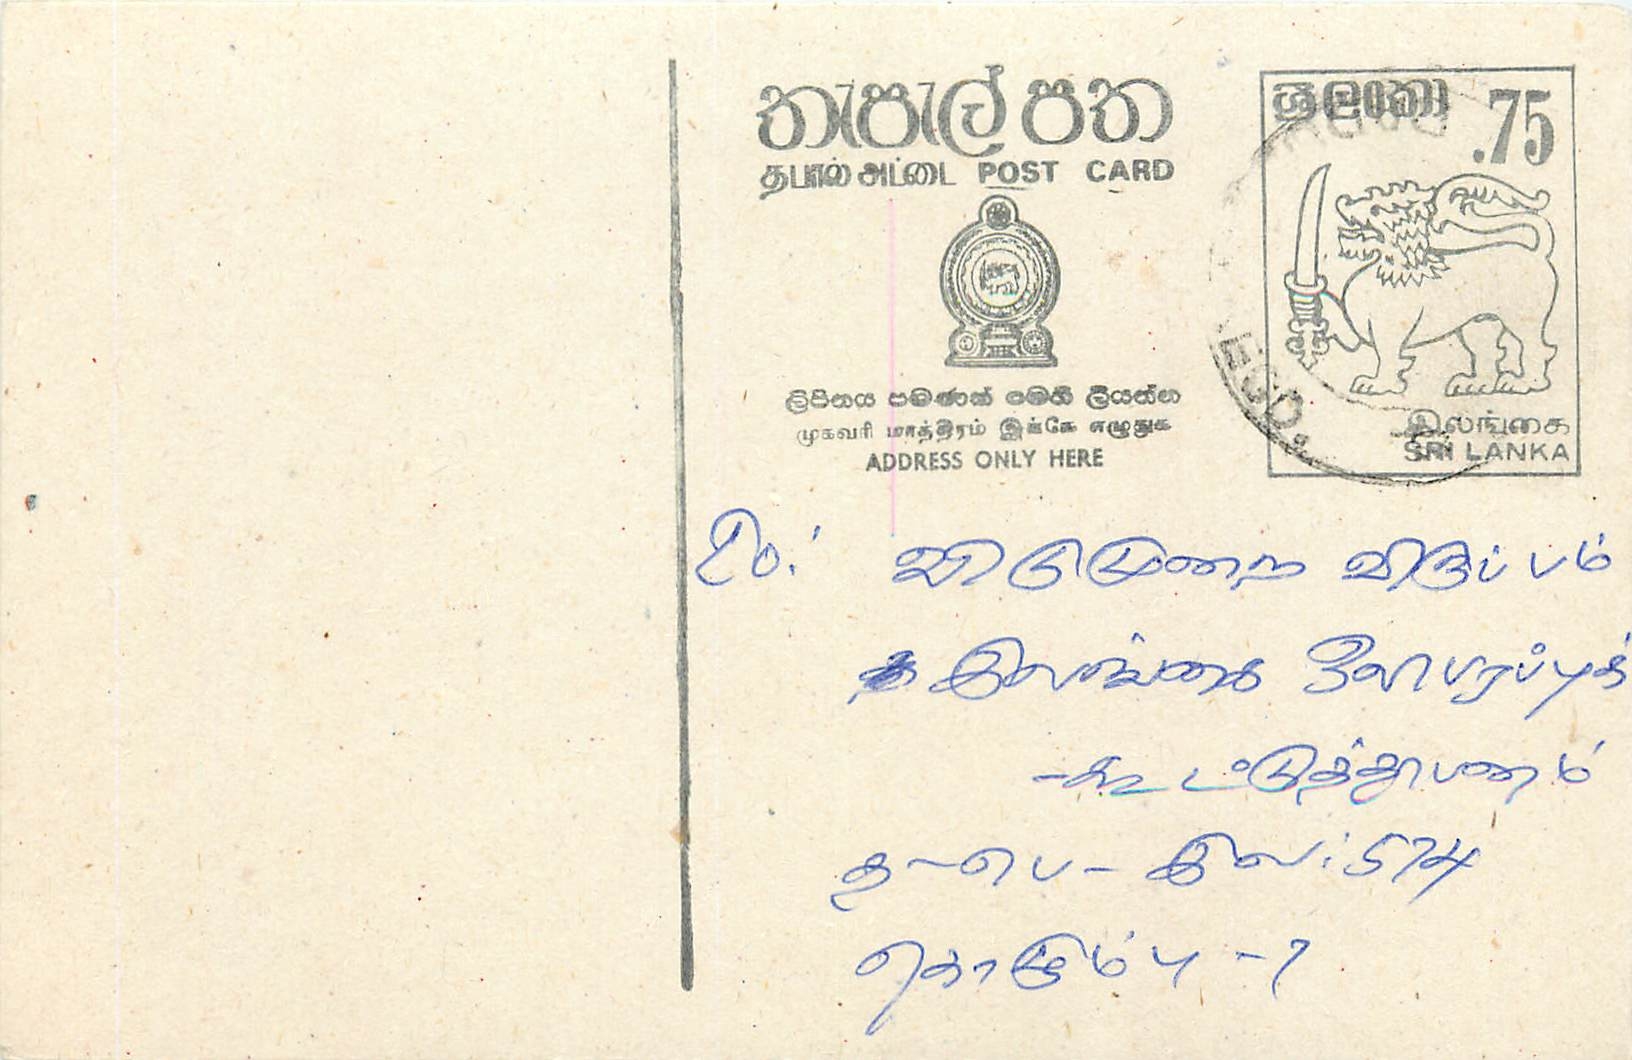 තැපැල් පත
தபால் அட்டை POST CARD
ලිපිනය පමණක් මෙහි ලියන්න
முகவரி மாத்திரம் இங்கே எழுதுக
ADDRESS ONLY HERE
ශ්‍රී ලංකා .75
இலங்கை
SRI LANKA
விடுமுறை விருப்பம்
இலங்கை ஒலிபரப்புக்
-கூட்டுத்தாபனம்
த-பெ- இல: 574
கொழும்பு -7